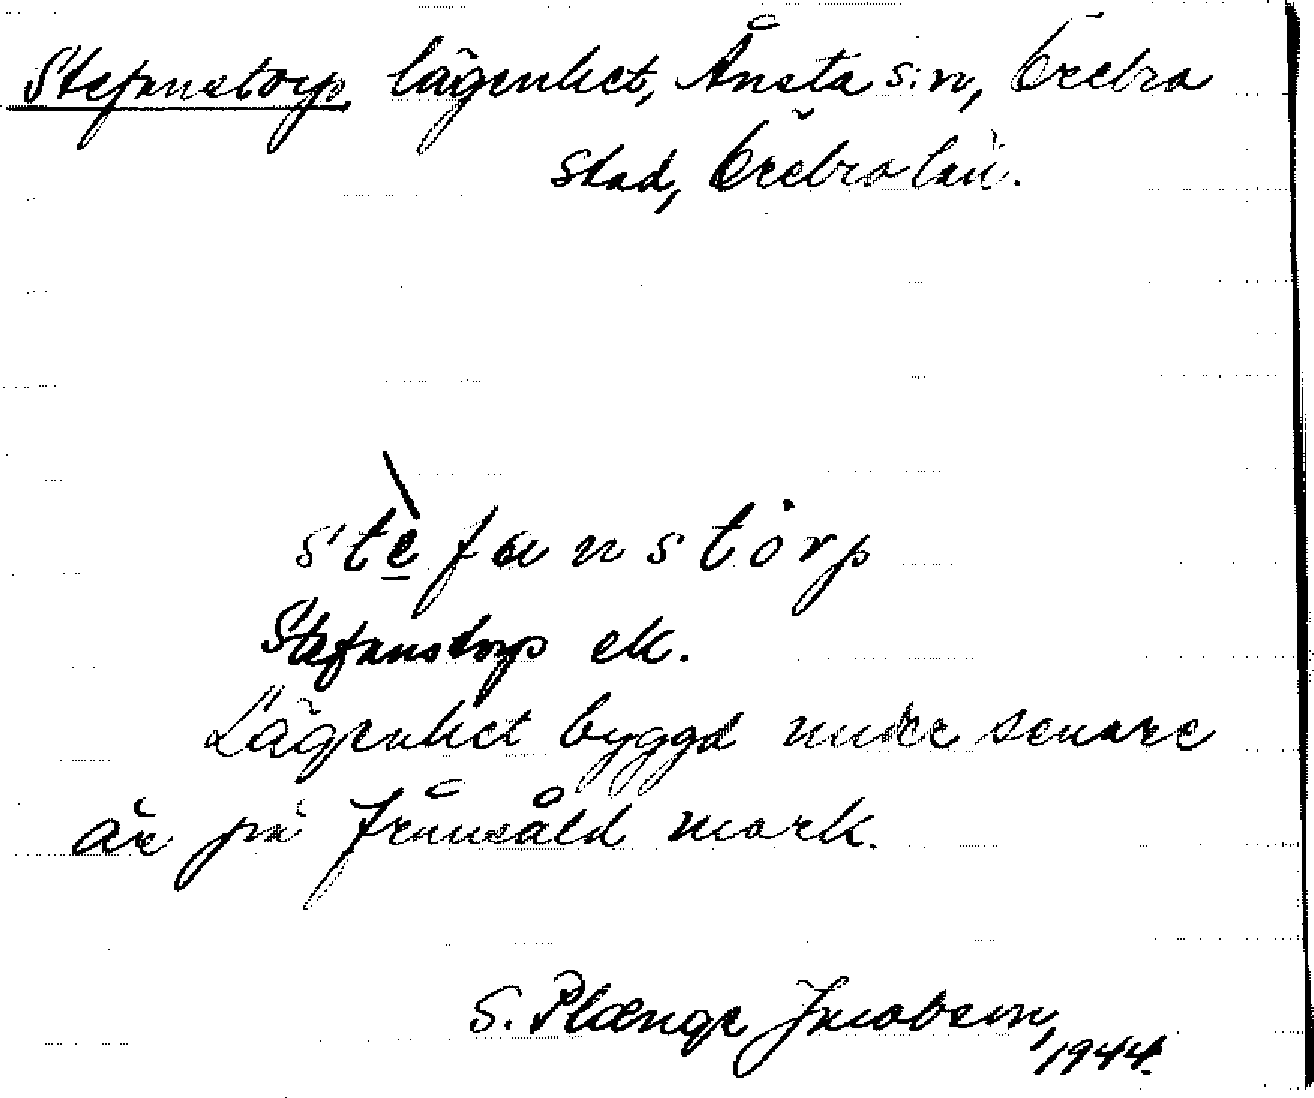 Stefanstorp lägenhet, Ånsta s:n, Örebro
stad, Örebro län.
stèfanstȯrp
Stefanstorp ek.
Lägenhet byggd under senare
år på frånsåld mark.
S. Plænge Jacobson,
1944.